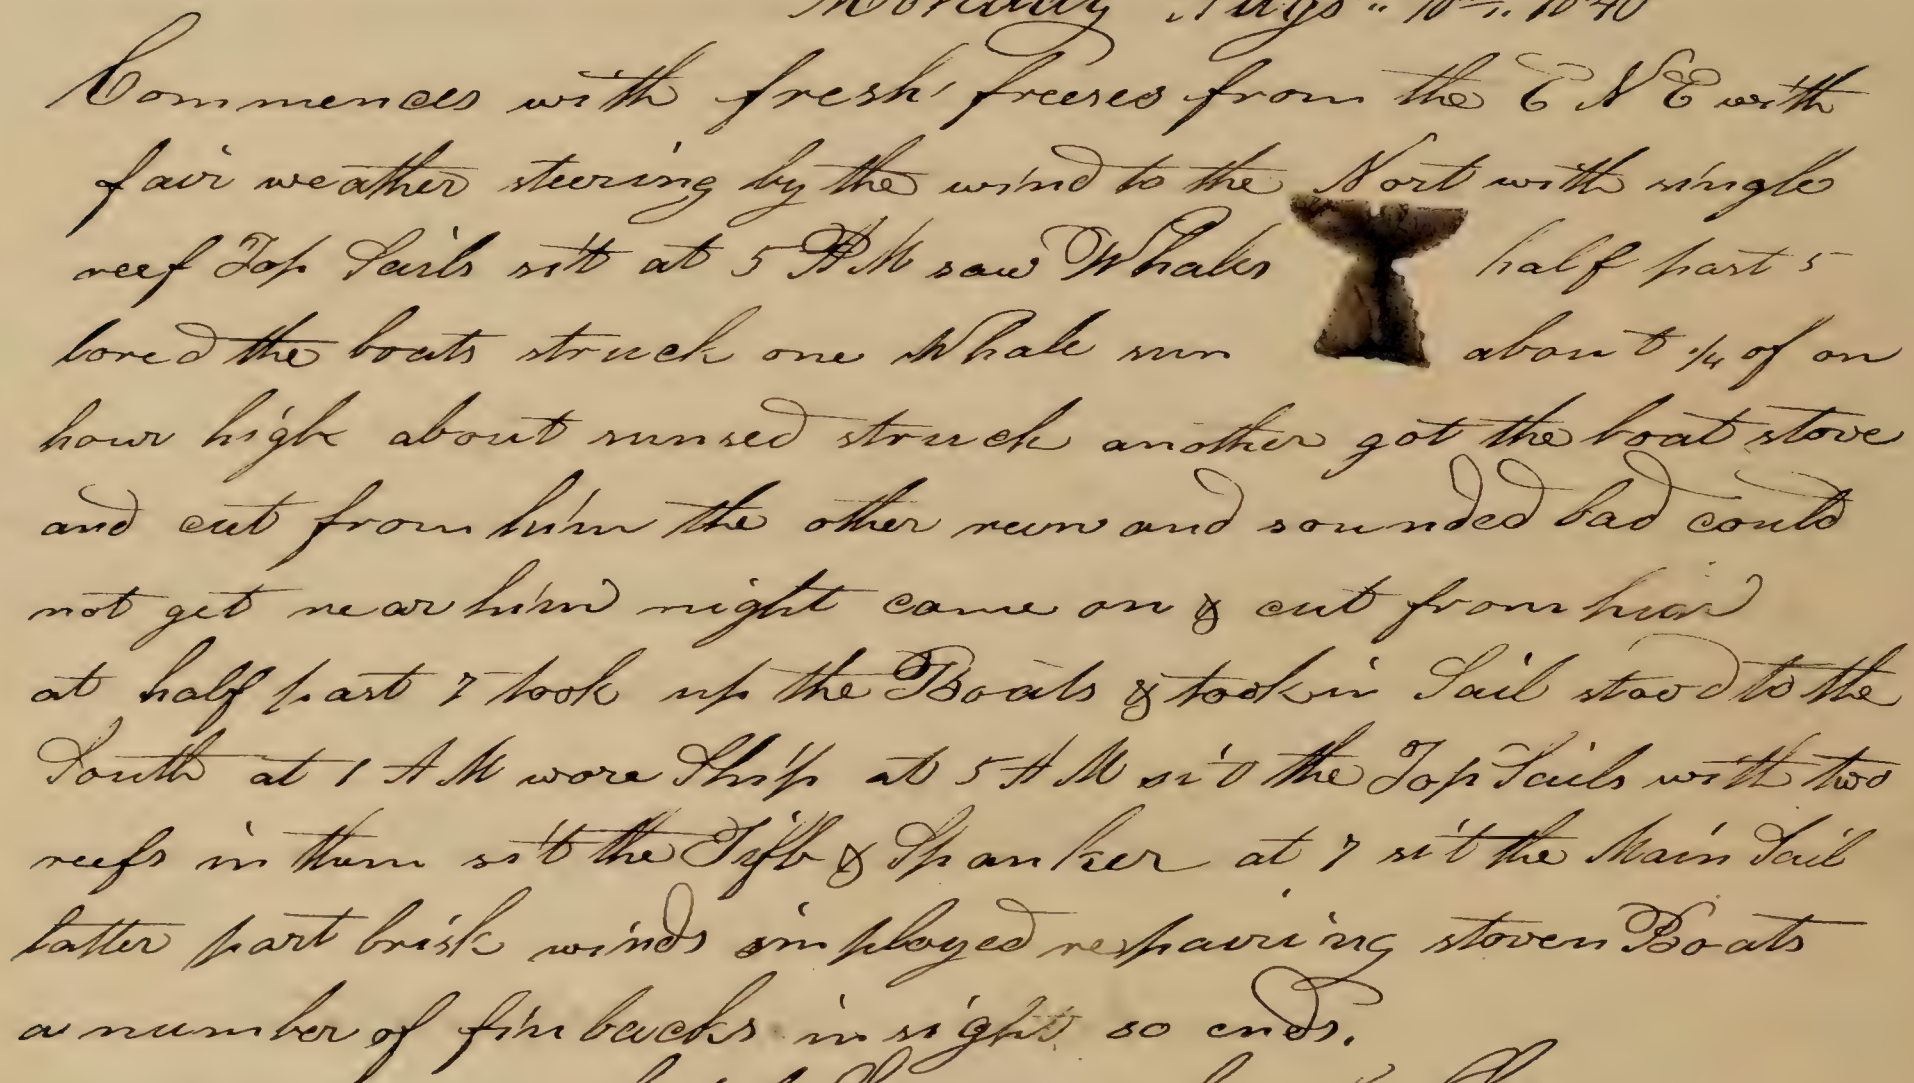 Monday Augs " 10th " 1840
Commences with fresh freeses from the E N E with
fair weather steering by the wind to the Nort with single
reef Top Sails sit at 5 P M saw Whales half part 5
lored the boats struck one Whale sun about 1/4 of an
hour high about sunsed struck another got the boat stove
and cut from him the other run and sounded bad could
not get near him night came on & cut from him
at half part 7 took up the Boats & took in Sail stood to the
South at 1 A M wore Ship at 5 A M sit the Top Sails with two
reefs in them sit the Jifb & Spanker at 7 sit the Main Sail
latter part brisk winds imployed respairing stoven Boats
a number of finbacks in sight so ends.